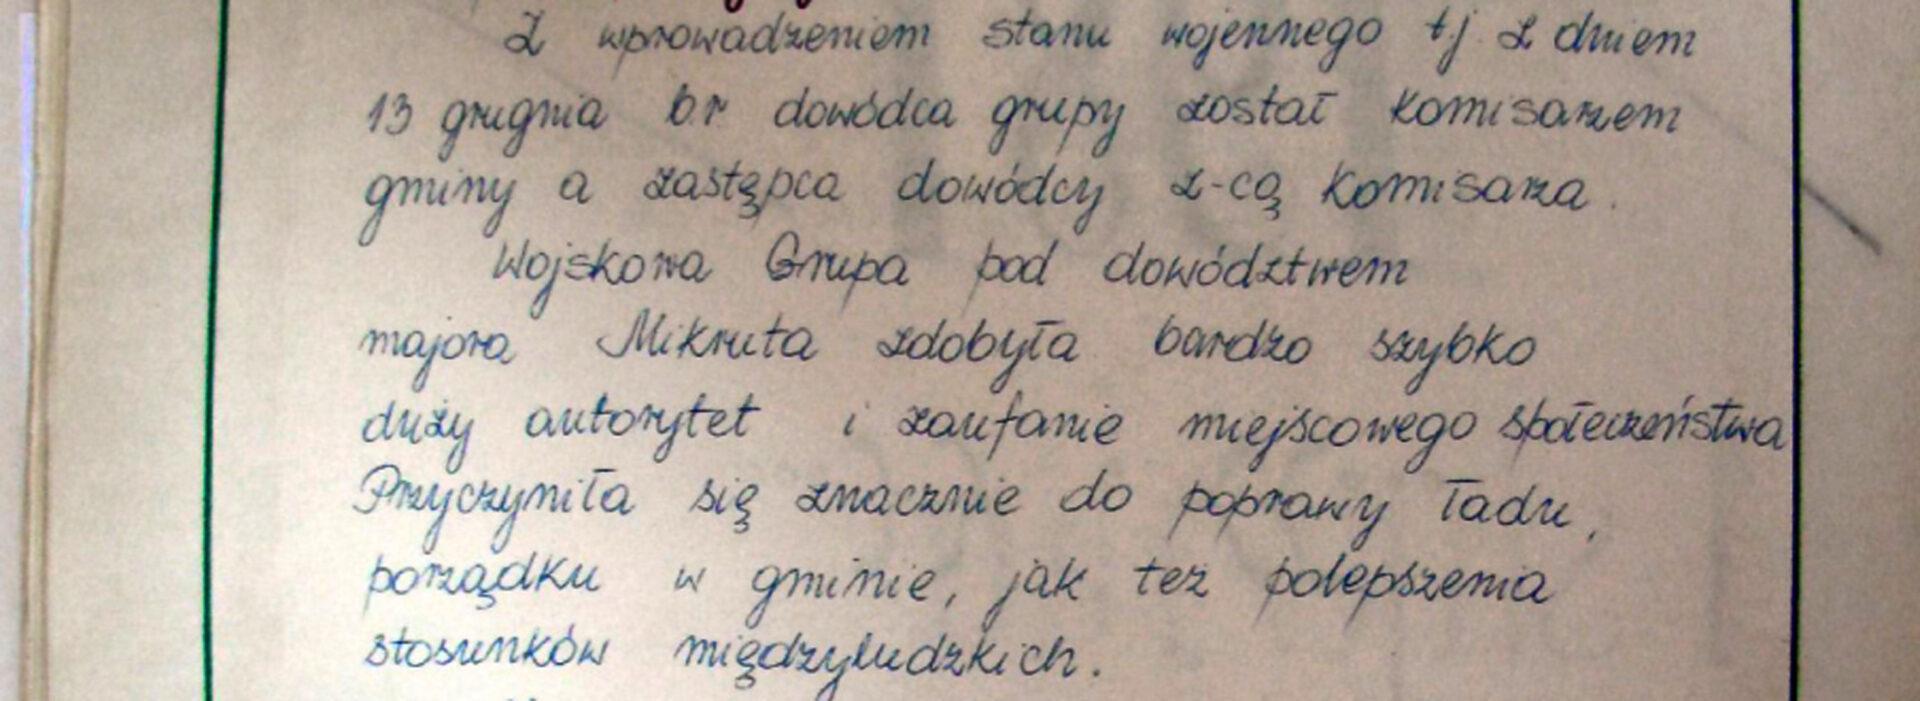 Z wprowadzeniem stanu wojennego tj. z dniem
13 grugnia b.r dowódca grupy został komisarzem
gminy a zastępca dowódcy z-cą komisarza.
Wojskowa Grupa pod dowództwem
majora Mikruta zdobyła bardzo szybko
duży autorytet i zaufanie miejscowego społeczeństwa
Przyczyniła się znacznie do poprawy ładu,
porządku w gminie, jak też polepszenia
stosunków międzyludzkich.